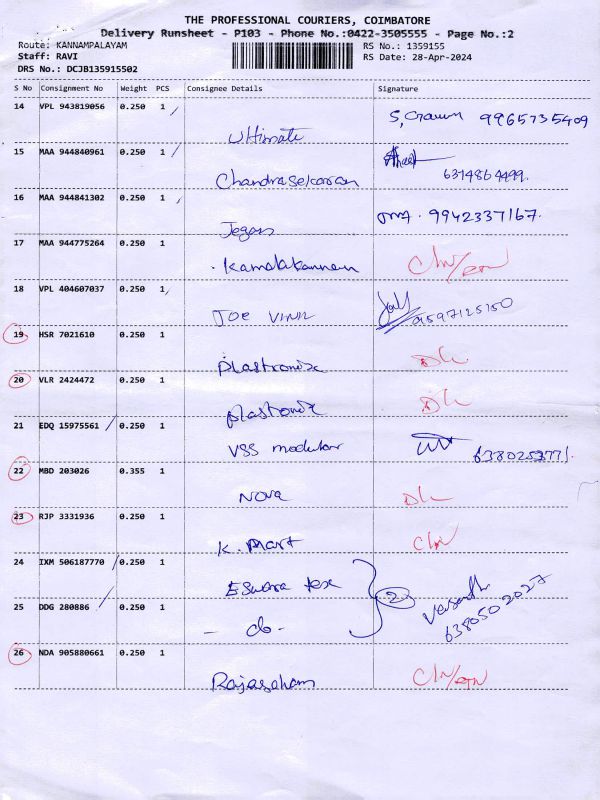 THE PROFESSIONAL COURIERS, COIMBATORE
Delivery Runsheet - P103 - Phone No.:0422-3505555 - Page No.:2
Route: KANNAMPALAYAM RS No.: 1359155
Staff: RAVI RS Date: 28-Apr-2024
DRS No.: DCJB135915502
S No Consignment No Weight PCS Consignee Details Signature
14 VPL 943819056 0.250 1 Ultimate 9965735409
15 MAA 944840961 0.250 1 Chandrasekaran 6374864499.
16 MAA 944841302 0.250 1 Jegan 9942337167.
17 MAA 944775264 0.250 1 Kamalakannan
18 VPL 404607037 0.250 1 JOE 9597125150
19 HSR 7021610 0.250 1 Plastronix DL
20 VLR 2424472 0.250 1 plastronix DL
21 EDQ 15975561 0.250 1 VSS modular 6380253771.
22 MBD 203026 0.355 1 NOVA DL
23 RJP 3331936 0.250 1 K. Mart
24 IXM 506187770 0.250 1 Eswara tex 2 Vasanth
25 DDG 280886 0.250 1 - do - 6380502027
26 NDA 905880661 0.250 1